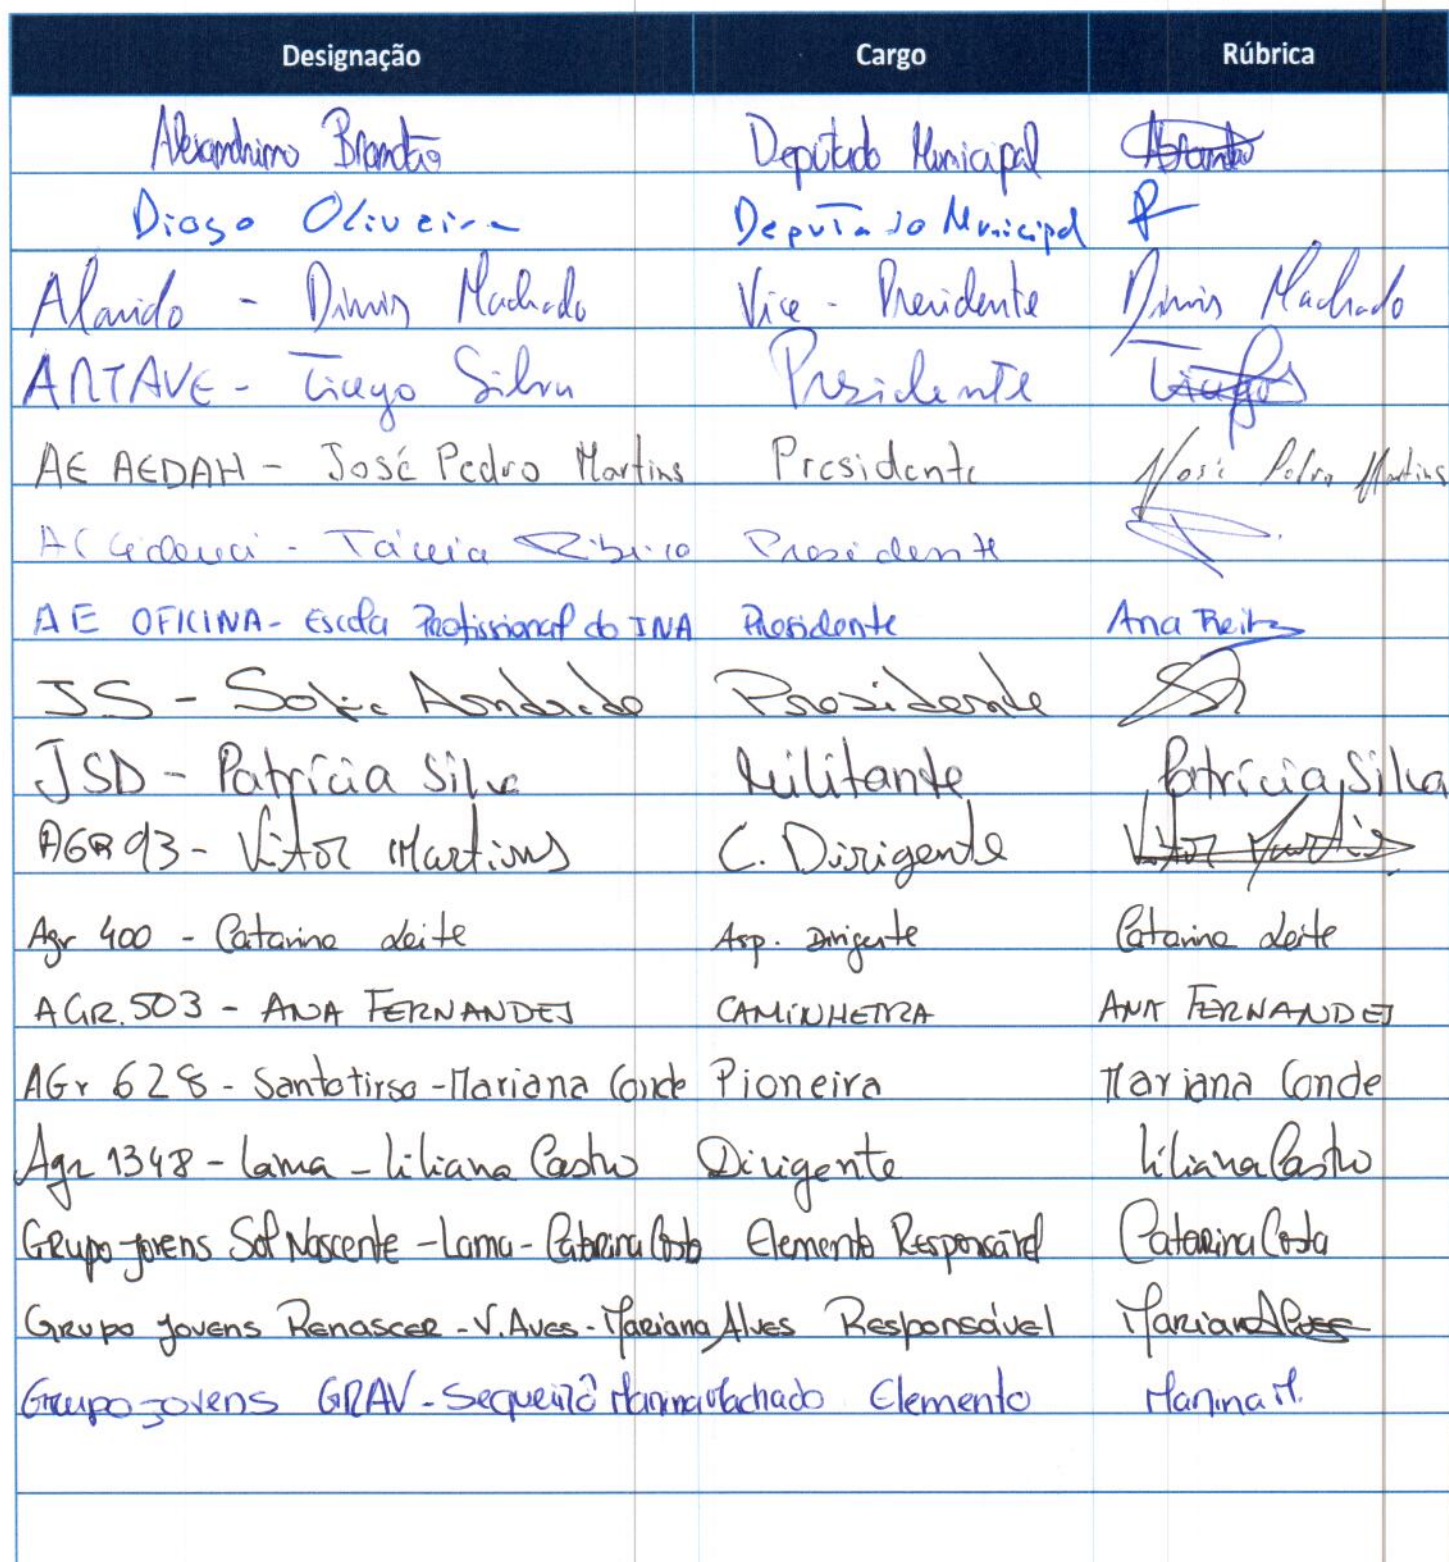 Designação Cargo Rúbrica
Alexandrino Brandão Deputado Municipal
Diogo Oliveira Deputado Municipal
Alarido - Dinis Machado Vice - Presidente Dinis Machado
ARTAVE - Tiago Silva Presidente Tiago
AE AEDAH - José Pedro Martins Presidente José Pedro Martins
Tânia Ribeiro Presidente
AE OFICINA - Escola Profissional do INA Presidente Ana
JS - Sofia Andrade Presidente
JSD - Patrícia Silva Militante Patrícia Silva
AGR 93 - Vitor Martins C. Dirigente Vitor Martins
Agr 400 - Catarina Leite Asp. Dirigente Catarina Leite
AGR. 503 - ANA FERNANDES CAMINHEIRA ANA FERNANDES
AGr 628 - Santo tirso - Mariana Conde Pioneira Mariana Conde
Agr 1348 - Lama - Liliana Castro Dirigente Liliana Castro
Grupo jovens Sol Nascente - Lama - Catarina Costa Elemento Responsável Catarina Costa
Grupo jovens Renascer - V. Aves - Mariana Alves Responsável Mariana Alves
Grupo jovens GRAV - Sequeirô Marina Machado Elemento Marina M.